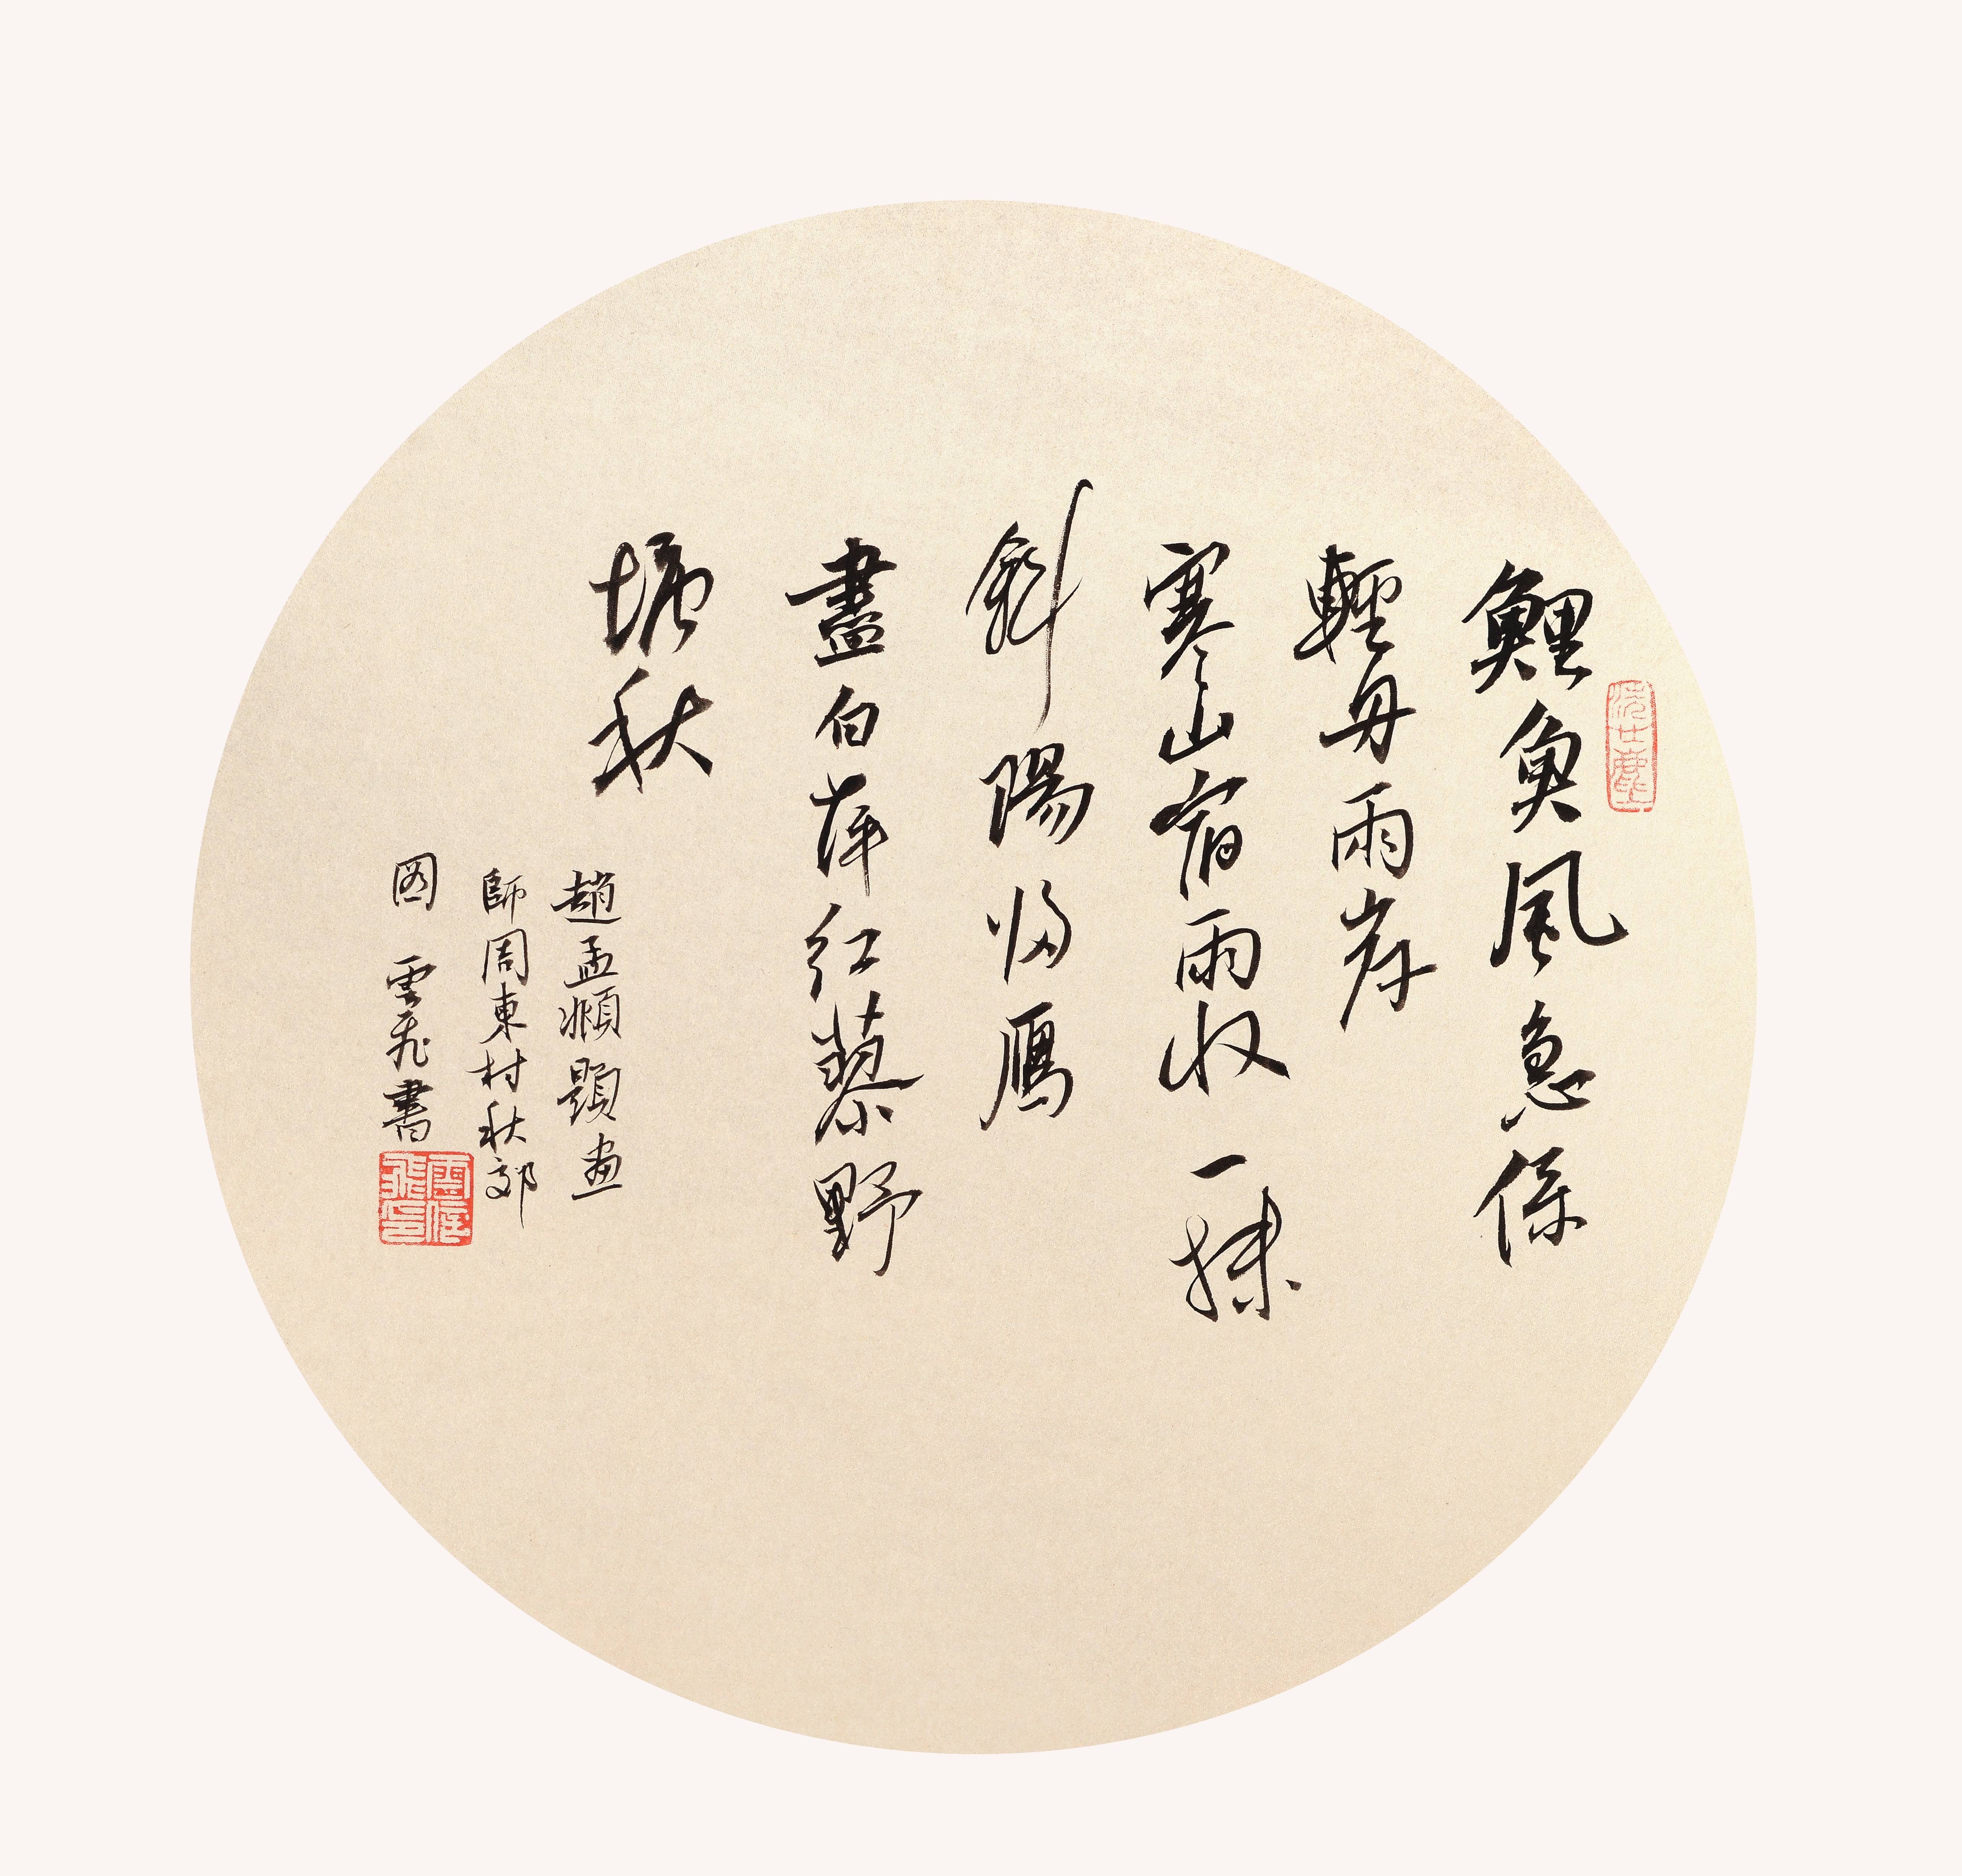 鯉魚風急係
輕舟兩岸
寒山宿雨收一抹
斜陽歸鴈
盡白萍紅蓼野
塘秋
趙孟頫題畫
師周東村秋郊
圖 雲飛書